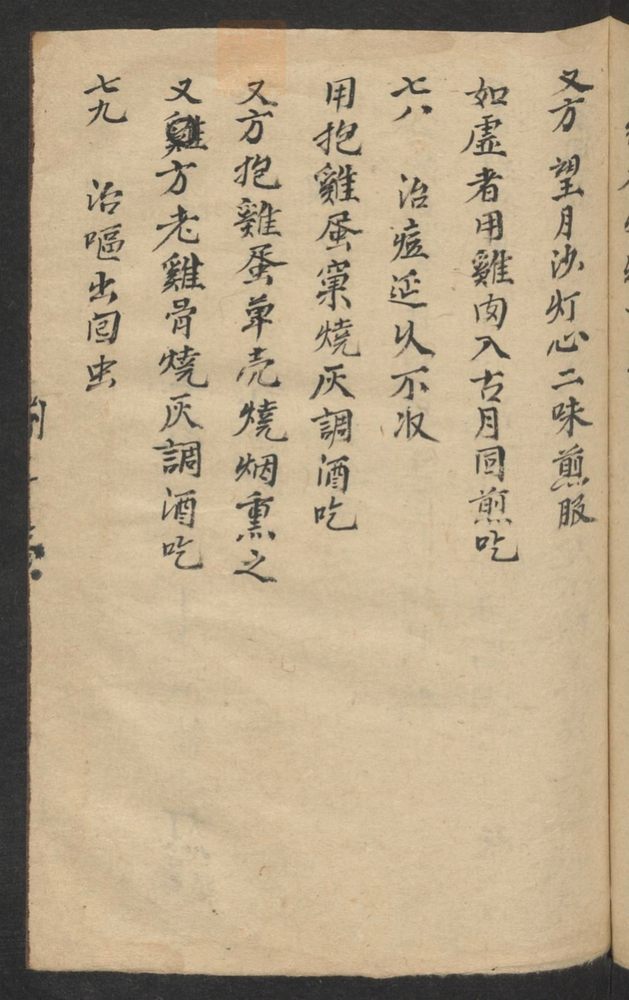 又方望月沙灯心二味煎服
如虛者用雞肉入古月同煎吃
七八 治痘延久不收
用抱雞蛋窠燒灰調酒吃
又方抱雞蛋单壳燒烟熏之
又雞方老雞骨燒灰調酒吃
七九 治嘔出囘虫